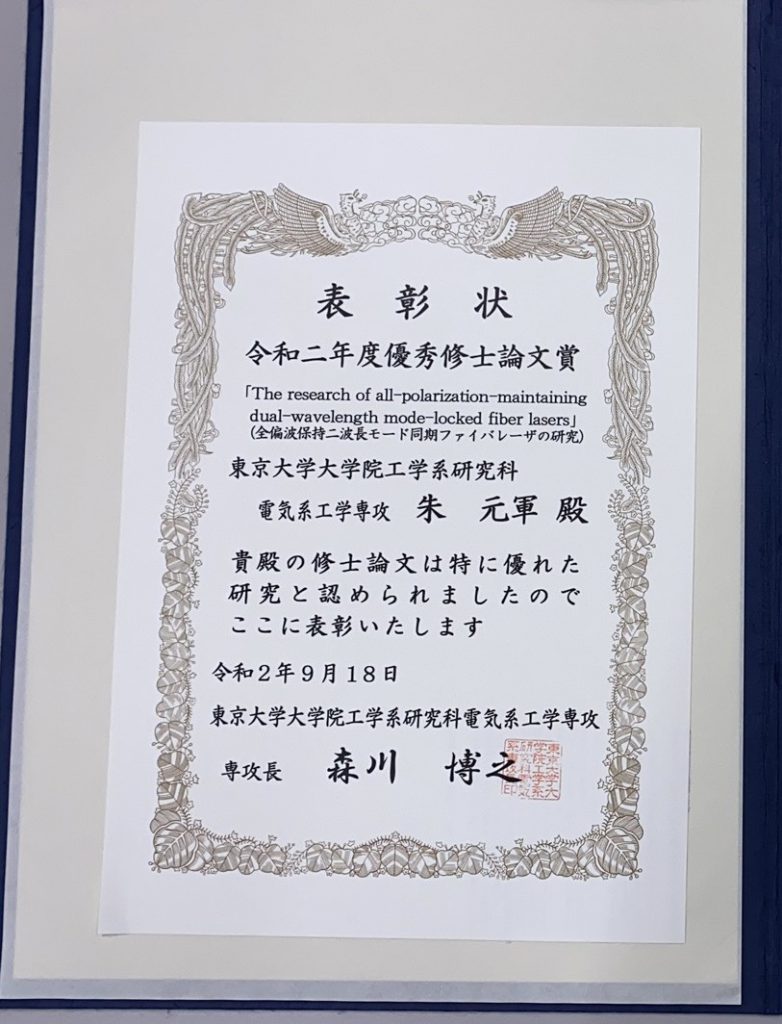 表彰状
令和二年度優秀修士論文賞
「The research of all-polarization-maintaining
dual-wavelength mode-locked fiber lasers」
(全偏波保持二波長モード同期ファイバレーザの研究)
東京大学大学院工学系研究科
電気系工学専攻 朱 元軍 殿
貴殿の修士論文は特に優れた
研究と認められましたので
ここに表彰いたします
令和2年9月18日
東京大学大学院工学系研究科電気系工学専攻
専攻長 森川 博之